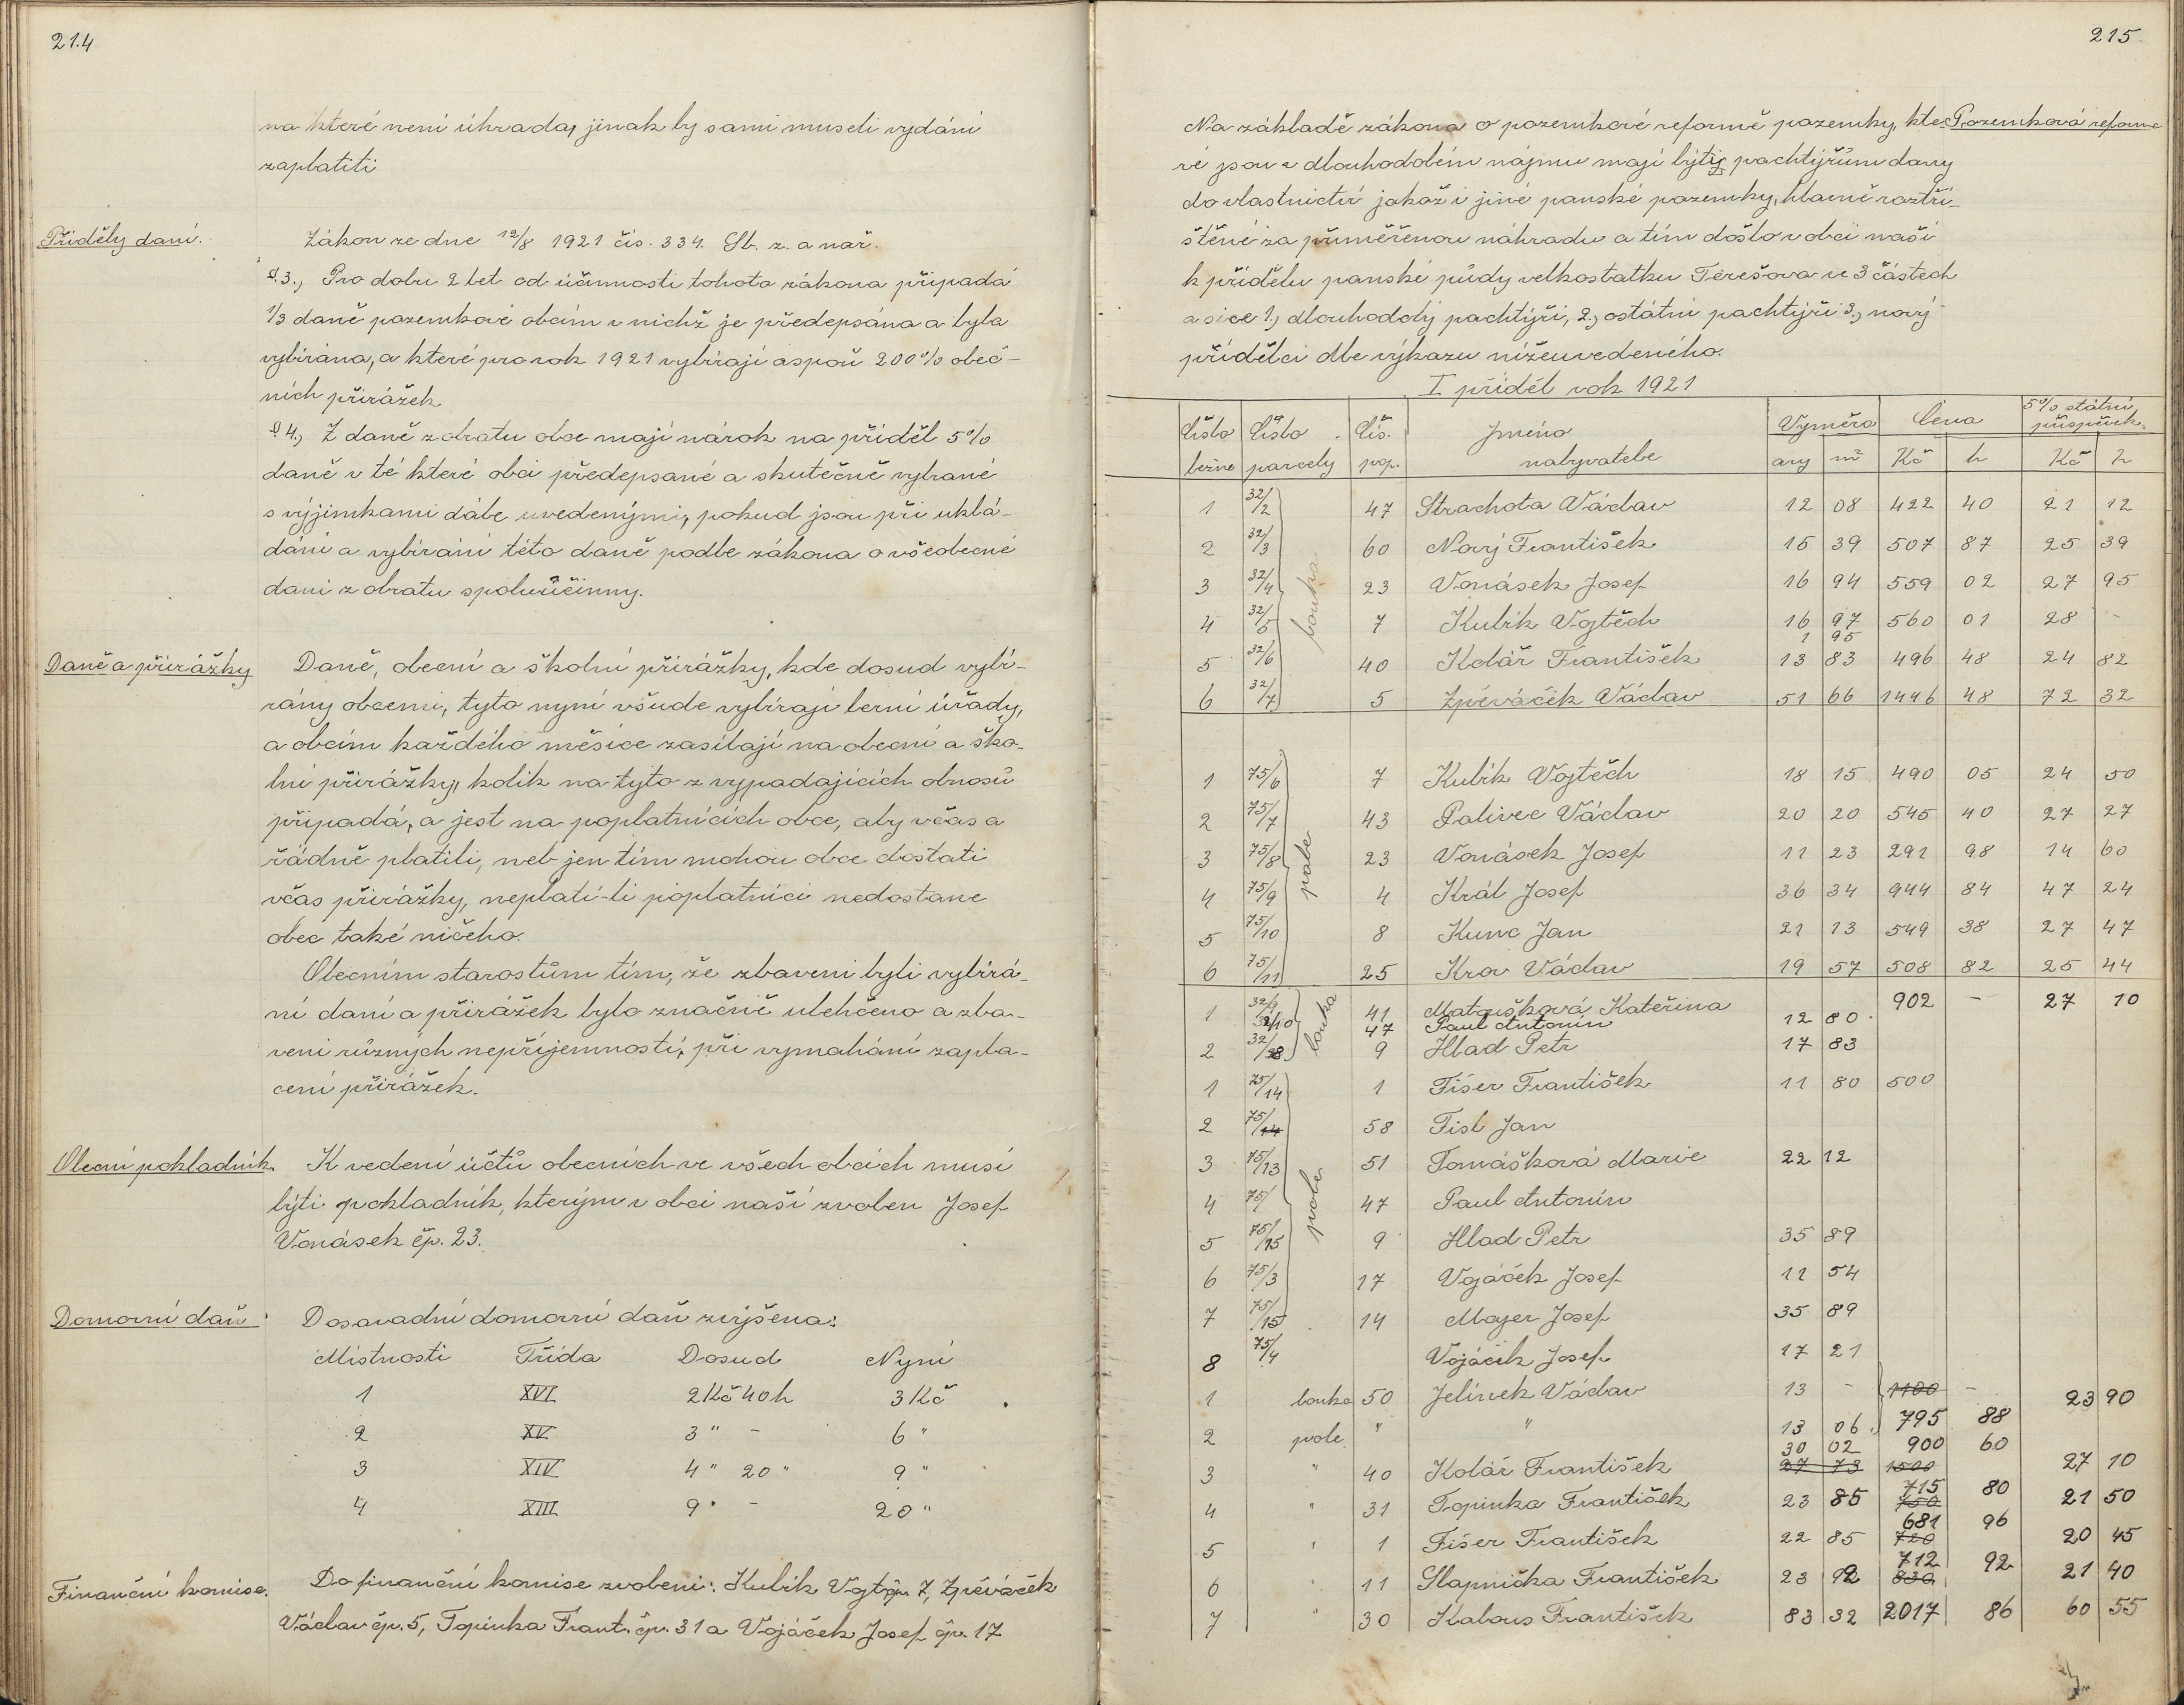 214
na které není úhrada, jinak by sami museli vydání
zaplatiti
Příděly daní.
Zákon ze dne 12/8 1921 čís. 334. Sb. z. a nař.
§.3., Pro dobu 2 let od účinnosti tohoto zákona připadá
1/3 daně pozemkové obcím v nichž je předepsána a byla
vybírána, a které pro rok 1921 vybírají aspoň 200% obec-
ních přirážek.
§ 4., Z daně z obratu obce mají nárok na příděl 5%
daně v té které obci předepsané a skutečně vybrané
s výjimkami dále uvedenými, pokud jsou při uklá-
dání a vybírání této daně podle zákona o všeobecné
dani z obratu spoluúčinny.
Daně a přirážky
Daně, obecní a školní přirážky, kde dosud vybí-
rány obcemi, tyto nyní všude vybírají berní úřady,
a obcím každého měsíce zasílají na obecní a ško-
lní přirážky, kolik na tyto z vypadajících obnosů
připadá, a jest na poplatnících obce, aby včas a
řádně platili, neb jen tím mohou obce dostati
včas přirážky, neplatí-li poplatníci nedostane
obec také ničeho.
Obecním starostům tím, že zbaveni byli vybírá-
ní daní a přirážek bylo značně ulehčeno a zba-
veni různých nepříjemností, při vymahání zapla-
cení přirážek.
Obecní pokladník.
K vedení účtů obecních ve všech obcích musí
býti pokladník, kterým v obci naší zvolen Josef
Vonásek čp. 23.
Domovní daň
Dosavadní domovní daň zvýšena:
Místnosti Třída Dosud Nyní
1 XVI 2 Kč 40 h 3 Kč
2 XV 3 " - 6 "
3 XIV 4 " 20 " 9 "
4 XIII 9 " - 20 "
Finanční komise.
Do finanční komise zvoleni: Kubík Vojt. čp. 7, Zpěváček
Václav čp. 5, Topinka Frant. čp. 31 a Vojáček Josef čp. 17
215.
Na základě zákona o pozemkové reformě pozemky, kte-
Pozemková reforma
ré jsou v dlouhodobém nájmu mají býti pachtýřům dány
do vlastnictví jakož i jiné panské pozemky, hlavně roztří-
štěné za přiměřenou náhradu a tím došlo v obci naší
k přídělu panské půdy velkostatku Terešova ve 3 částech
a sice 1., dlouhodobý pachtýři, 2., ostátní pachtýři 3., nový
přídělci dle výkazu níže uvedeného.
I. příděl rok 1921
Číslo Číslo Čís. Jméno Výměra Cena 5% státní příspěvek
běžné parcely pop. nabyvatele ary m² Kč h Kč h
1 32/2 47 Strachota Václav 12 08 422 40 21 12
2 32/3 60 Nový František 15 39 507 87 25 39
3 32/4 louka 23 Vonásek Josef 16 94 559 02 27 95
4 32/5 7 Kubík Vojtěch 16 97 560 01 28 -
1 95
5 32/6 40 Kolář František 13 83 496 48 24 82
6 32/7 5 Zpěváček Václav 51 66 1446 48 72 32
1 75/6 7 Kubík Vojtěch 18 15 490 05 24 50
2 75/7 43 Palivec Václav 20 20 545 40 27 27
3 75/8 pole 23 Vonásek Josef 11 23 291 98 14 60
4 75/9 4 Král Josef 36 34 944 84 47 24
5 75/10 8 Kunc Jan 21 13 549 38 27 47
6 75/11 25 Krov Václav 19 57 508 82 25 44
1 32/9 41 Matoušková Kateřina 902 - 27 10
32/10 louka 47 Paul Antonín 12 80
2 32/28 9 Hlad Petr 17 83
1 75/14 1 Fišer František 11 80 500
2 75/14 58 Fisl Jan
3 75/13 51 Tomášková Marie 22 12
4 75/ pole 47 Paul Antonín
5 75/15 9 Hlad Petr 35 89
6 75/3 17 Vojáček Josef 11 54
7 75/15 14 Majer Josef 35 89
8 75/4 Vojáček Josef 17 21
1 louka 50 Jelínek Václav 13 - 1100 - 23 90
2 pole " " 13 06 795 88
30 02 900 60
3 " 40 Kolář František 27 73 1500 27 10
715 80
4 " 31 Topinka František 23 85 750 21 50
681 96
5 " 1 Fišer František 22 85 720 20 45
712 92
6 " 11 Slapnička František 23 92 830 21 40
7 " 30 Kabous František 83 32 2017 86 60 55